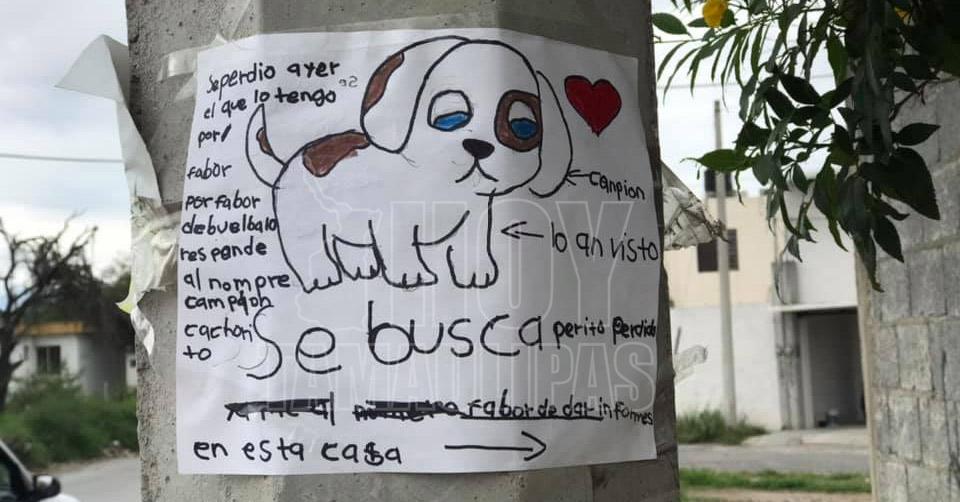 Se perdio ayer
el que lo tengo
por
fabor
por fabor
debuelbalo
responde
al nompre
campion
cachori
to
canpion
lo an visto
Se busca perito perdido
fabor de dar informes
en esta casa
HOY
TAMAULIPAS